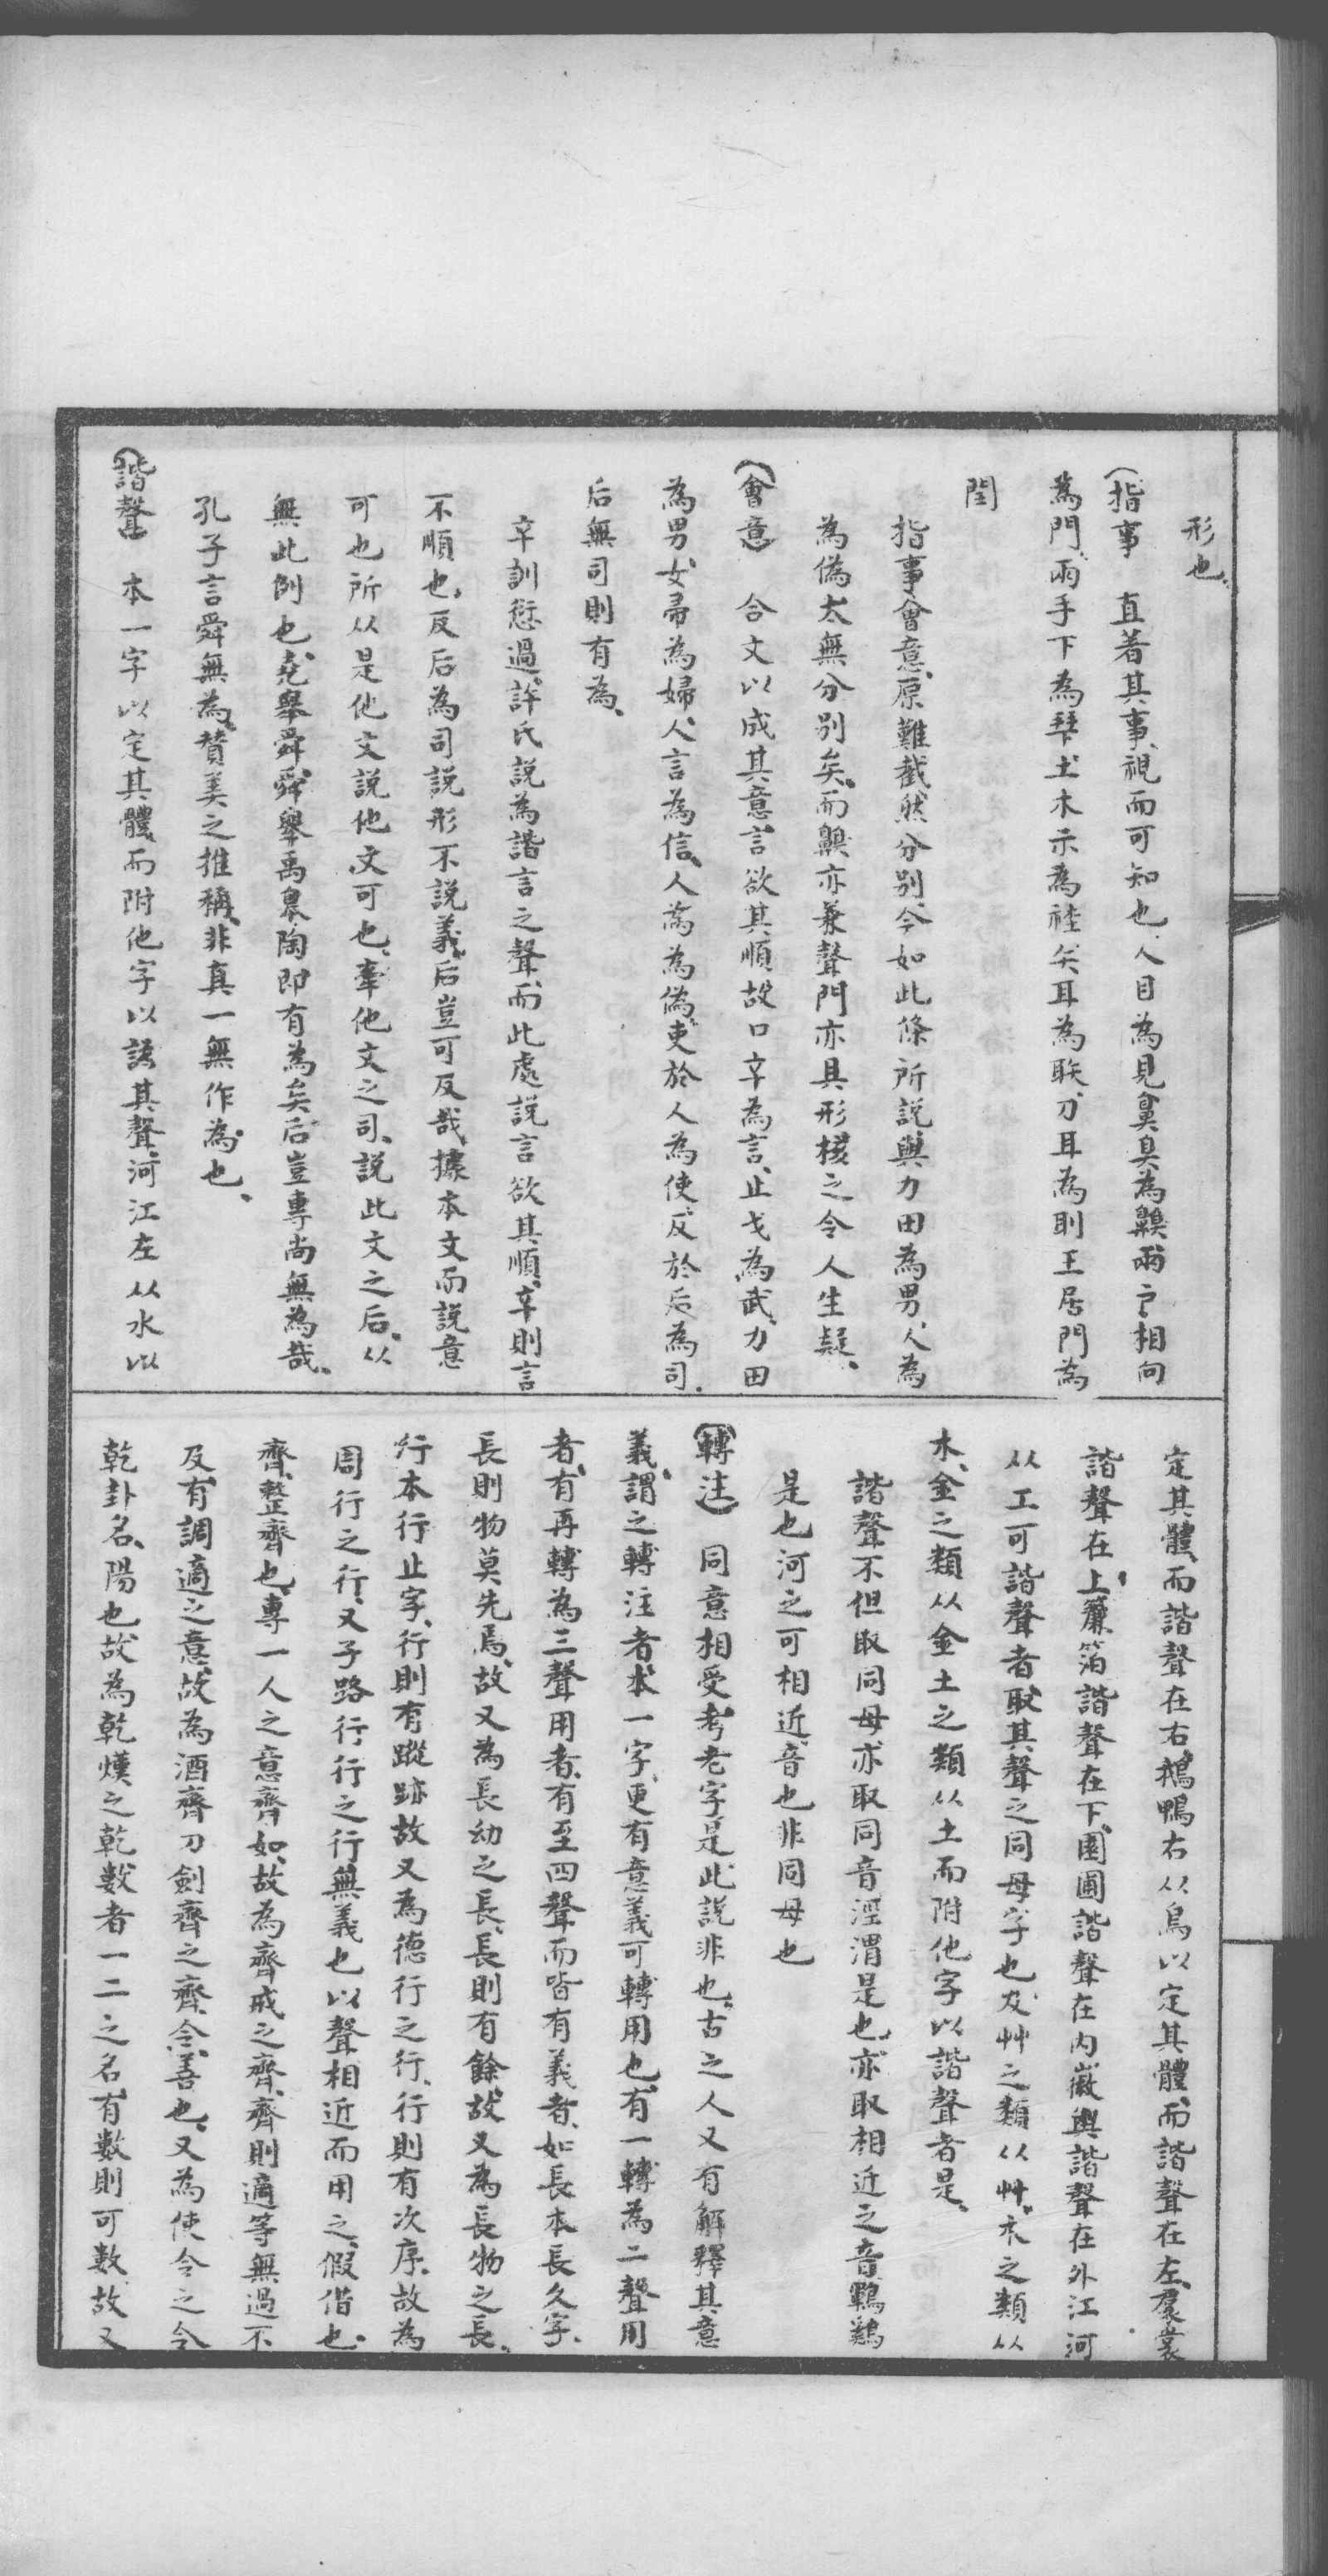 形也、
(指事　直着其事、視而可知也、人目為見、臭為齅、兩户相向
為門、兩手下為拜、土木示為社矣、耳為聅、刀耳為刵、王居門為
閏
指事會意、原難截然分別、今如此條所説、與力田為男、人為
為偽太無分別矣、而齅亦兼聲、門亦具形、核之令人生疑、
(會意)　合文以成其意、言欲其順、故口䇂為言、止戈為武、力田
為男、女帚為婦、人言為信、人為為偽、吏於人為使、反於后為司、
后無司則有為、
䇂訓愆過、許氏説為諧言之聲、而此處説言欲其順、䇂則言
不順也、反后為司、説形不説義、后豈可反哉、據本文而説意
可也、所从是他文、説他文可也、牽他文之司、説此文之后、从
無此例也、堯舉舜、舜舉禹皋陶、即有為矣、后豈專尚無為哉、
孔子言舜無為、贊美之推稱、非真一無作為也、
(諧聲)　本一字以定其體、而附他字以諧其聲、河江左从水以
定其體、而諧聲在右、鵝鴨右从鳥以定其體、而諧聲在左、裠裳
諧聲在上、簾箔諧聲在下、園圃諧聲在内、徽輿諧聲在外、江河
从工可諧聲者、取其聲之同母字也、及艸之類从艸、木之類从
木、金之類从金、土之類从土、而附他字以諧聲者是、
諧聲不但取同母、亦取同音、涇渭是也、亦取相近之音、鸭鷄
是也、河之可相近音也、非同母也
(轉注)　同意相受、考老字是、此説非也、古之人又有解釋其意
義、謂之轉注者、本一字、更有意義可轉用也、有一轉為二聲用
者、有再轉為三聲用者、有至四聲而皆有義者、如長本長久字、
長則物莫先焉、故又為長幼之長、長則有餘、故又為長物之長、
行本行止字、行則有蹤跡、故又為德行之行、行則有次序、故為
周行之行、又子路行行之行、無義也、以聲相近而用之、假借也、
齊、整齊也、專一人之意齊如、故為齊戒之齊、齊則適等無過不
及、有調適之意、故為酒齊刀劍齊之齊、令、善也、又為使令之令
乾卦名、陽也、故為乾熯之乾、數者一二之名、有數則可數、故又